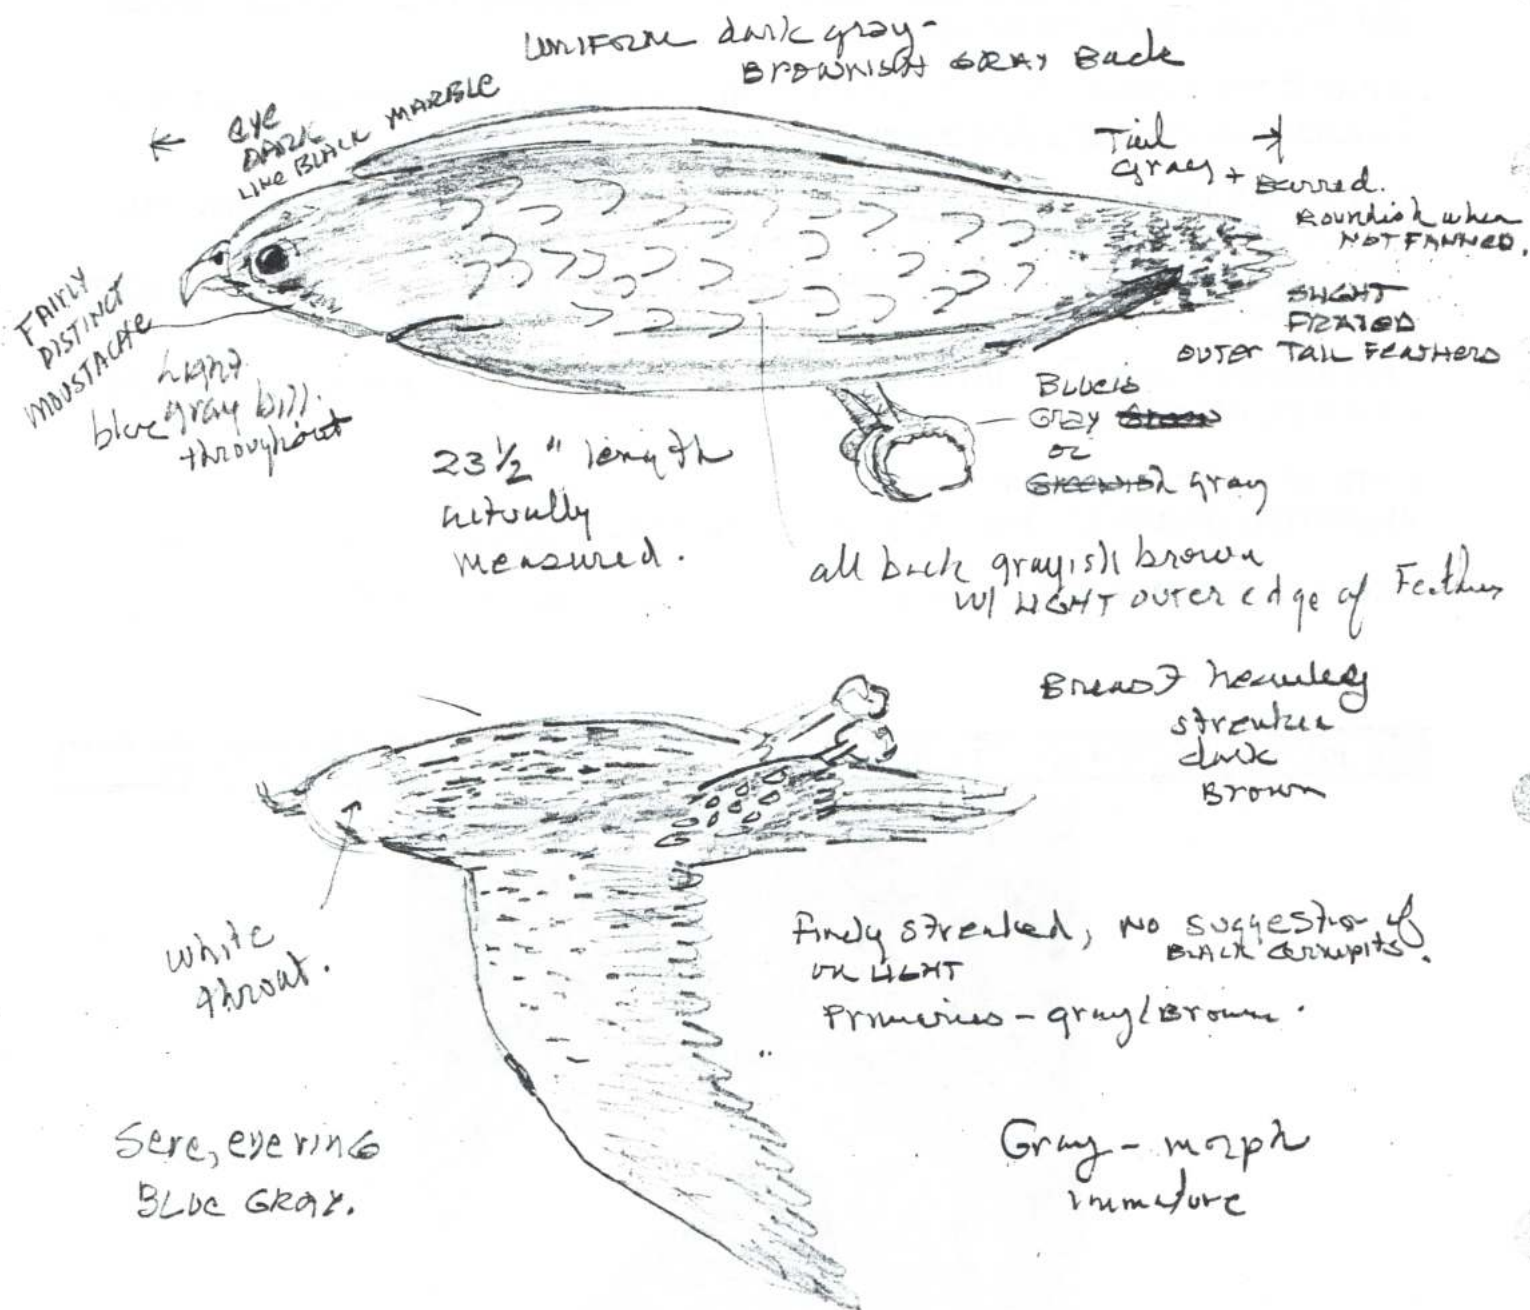 UNIFORM dark gray -
BROWNISH GRAY Back
← EYE
DARK
LIKE BLACK MARBLE
Tail →
gray + Barred.
Roundish when
NOT FANNED.
SLIGHT
FRAYED
OUTER TAIL FEATHERS
FAIRLY
DISTINCT
MOUSTACHE
Light
blue gray bill.
throughout
23 1/2 " length
actually
measured.
Blueis
Gray Green
or
Greenish gray
all back grayish brown
W/ LIGHT outer edge of Feathers
Breast heavily
streaked
dark
Brown
white
throat.
Finely streaked, no suggestion of
BLACK armpits.
on LIGHT
Primaries - gray/Brown.
Sere, eye ring
BLUE GRAY.
Gray - morph
immature